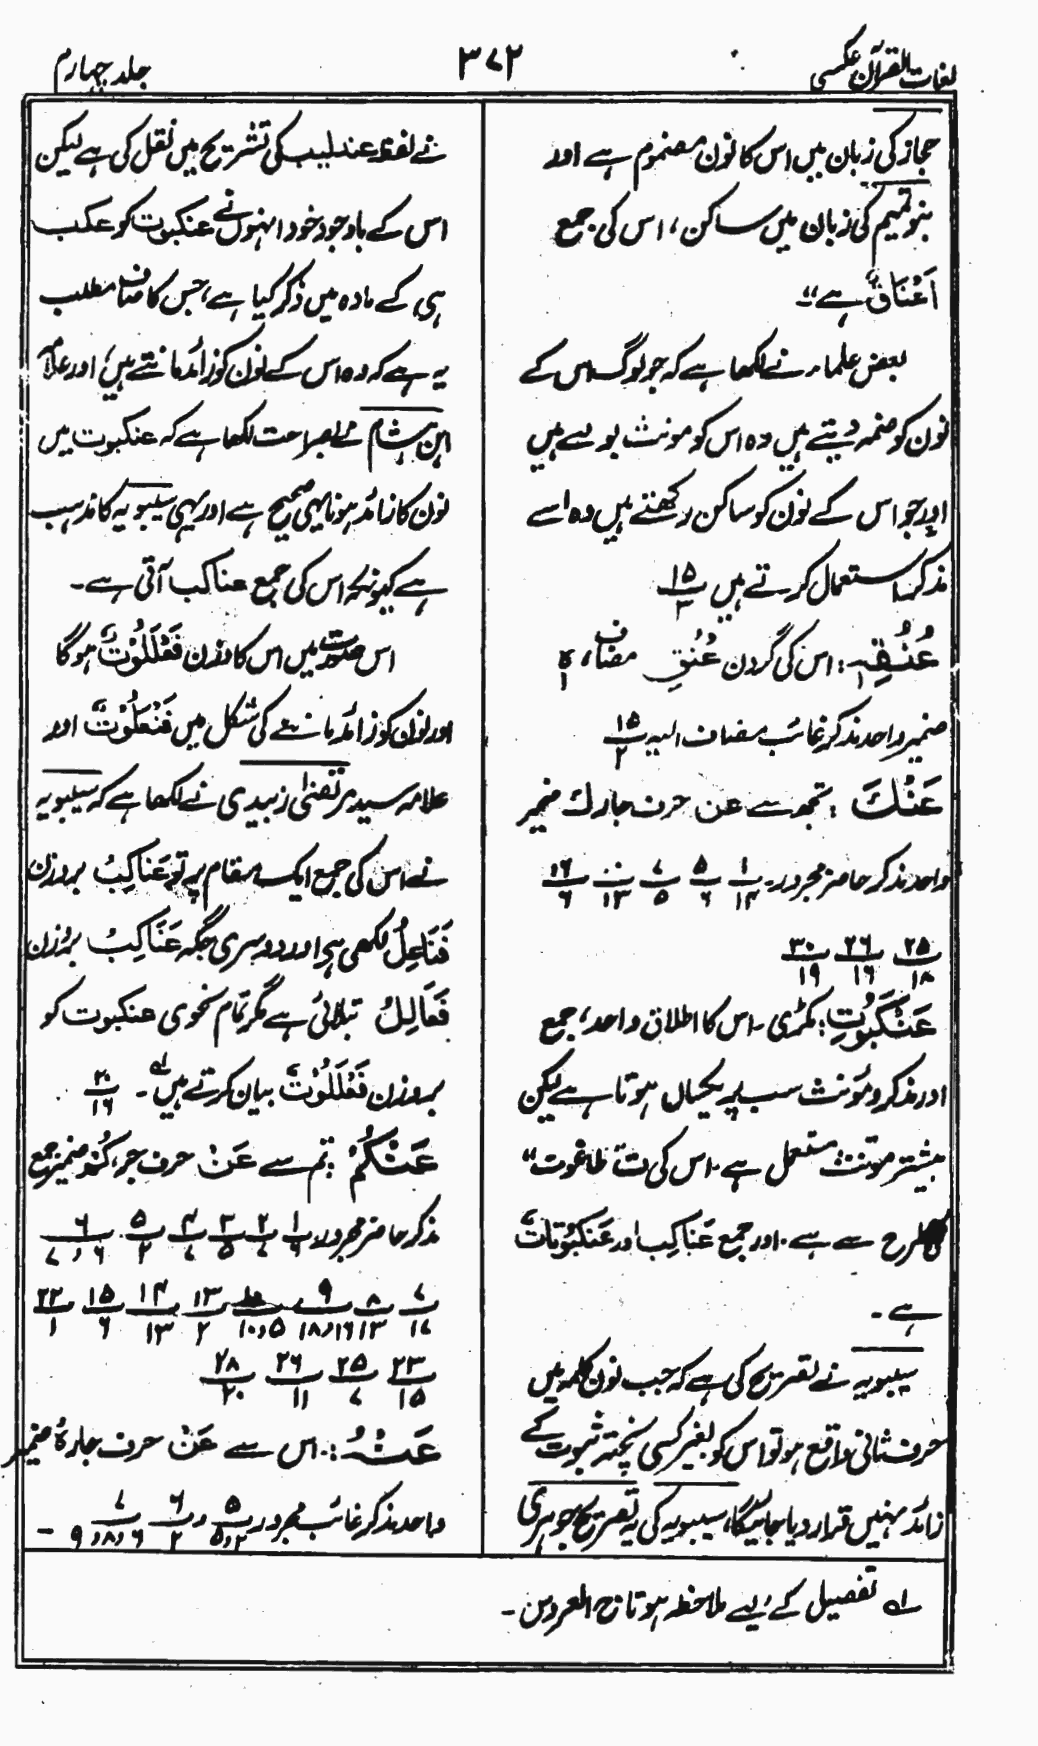 لغات القرآن عکسی
۳۷۲
جلد چہارم
حجاز کی زبان میں اس کا نون مضموم ہے اور
بنو تمیم کی زبان میں ساکن، اس کی جمع
اَعْنَاقٌ ہے"۔
بعض علماء نے لکھا ہے کہ جو لوگ اس کے
نون کو ضمہ دیتے ہیں وہ اس کو مونث بولتے ہیں
اور جو اس کے نون کو ساکن رکھتے ہیں وہ اسے
مذکر استعمال کرتے ہیں ۱۵/۳
عُنُقِہٖ: اس کی گردن عُنُقِ مضاف، ہٖ
ضمیر واحد مذکر غائب مضاف الیہ ۱۵/۲
عَنْكَ: تجھ سے عن حرف جار ك ضمیر
واحد مذکر حاضر مجرور۔ ۱/۱۴ ۵/۶ ۷/۵ ۱۰/۱۳ ۱۶/۶
۲۵/۱۸ ۲۶/۱۶ ۳۰/۱۹
عَنْكَبُوْتِ: مکڑی۔ اس کا اطلاق واحد، جمع
اور مذکر و مؤنث سب پر یکساں ہوتا ہے لیکن
بیشتر مونث مستعمل ہے۔ اس کی ت طاغوت"
کی طرح سے ہے۔ اور جمع عَنَاكِب اور عَنْكَبُوْتَاتٌ
ہے۔
سیبویہ نے تصریح کی ہے کہ جب نون کلمہ میں
حرف ثانی واقع ہو تو اس کو بغیر کسی پختہ ثبوت کے
زائد نہیں قرار دیا جائیگا، سیبویہ کی یہ تصریح جوہری
نے لفظ عندلیب کی تشریح میں نقل کی ہے لیکن
اس کے باوجود خود انہوں نے عنکبوت کو عکب
ہی کے مادہ میں ذکر کیا ہے، جس کا صاف مطلب
یہ ہے کہ وہ اس کے نون کو زائد مانتے ہیں، اور علامہ
ابن ہشام نے بصراحت لکھا ہے کہ عنکبوت میں
نون کا زائد ہونا ہی صحیح ہے اور یہی سیبویہ کا مذہب
ہے کیونکہ اس کی جمع عناکب آتی ہے۔
اس صورت میں اس کا وزن فَعْلَلُوْتٌ ہوگا
اور نون کو زائد ماننے کی شکل میں فَنْعَلُوْتٌ اور
علامہ سید مرتضیٰ زبیدی نے لکھا ہے کہ سیبویہ
نے اس کی جمع ایک مقام پر تو عَنَاكِبُ بروزن
فَنَاعِلُ لکھی ہے اور دوسری جگہ عَنَاكِبُ بروزن
فَعَالِلُ بتلائی ہے مگر تمام نحوی عنکبوت کو
بروزن فَعْلَلُوْتٌ بیان کرتے ہیں لہ۔ ۲۰/۱۶
عَنْكُمْ: تم سے عَنْ حرف جر، كُمْ ضمیر جمع
مذکر حاضر مجرور ۱/۶ ۲/۷ ۳/۵ ۴/۷ ۵/۲ ۶/۶،۷
۷/۱۷ ۸/۱۳ ۹/۱۶،۱۸ ۱۰/۵،۱۰ ۱۳/۲ ۱۴/۱۳ ۱۵/۶ ۲۲/۱
۲۳/۱۵ ۲۵/۷ ۲۶/۱۱ ۲۸/۲۰
عَنْہُ: اس سے عَنْ حرف جار ہُ ضمیر
واحد مذکر غائب مجرور ۵/۲،۵ و ۶/۲ ۷/۶،۸،۹ ۔
لہ تفصیل کے لیے ملاحظہ ہو تاج العروس۔